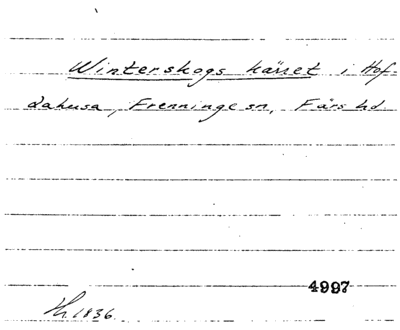 Winterskogs kärret i Hof-
dahusa, Frenninge sn, Färs hd
4997
Hr. 1836.